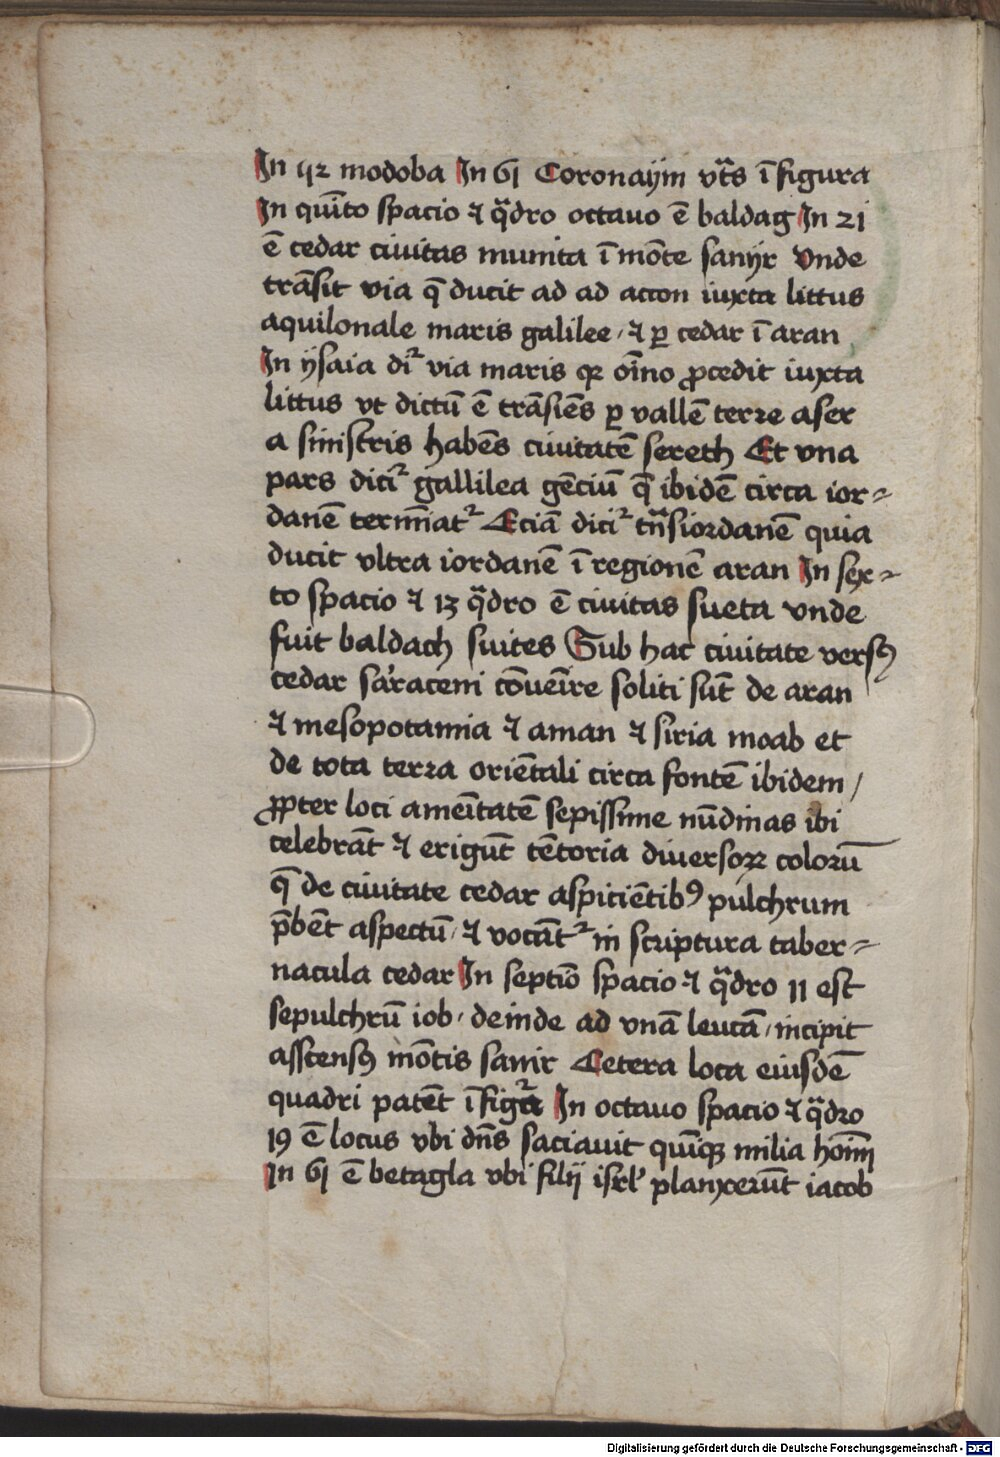 In 42 modoba In 61 Coronayim vt̄s ī figura
In quīto spacio ⁊ q̄dro octauo ē baldag In 21
ē cedar ciuitas munita ī mōte sanyr vnde
trāsit via q̄ ducit ad ad accon iuxta littus
aquilonale maris galilee / ⁊ ꝑ cedar ī aran
In ysaia dr̄ via maris qꝛ oīno ꝓcedit iuxta
littus vt dictū ē trāsiēs ꝑ vallē terre aser
a sinistris habēs ciuitatē sereth Et vna
pars dicit᷑ gallilea gēciū q̄ ibidē circa ior⸗
danē termīat᷑ Eciā dicit᷑ tn̄siordanē quia
ducit vltra iordanē ī regionē aran In sex⸗
to spacio ⁊ 13 q̄dro ē ciuitas sueta vnde
fuit baldach suites Sub hac ciuitate versꝰ
cedar sar̄aceni cōueīre soliti sūt de aran
⁊ mesopotamia ⁊ aman ⁊ siria moab et
de tota terra oriētali circa fontē ibidem /
ꝓpter loci ameītatē sepissime nūdinas ibi
celebrāt ⁊ erigūt tētoria diuersoꝝ colorū
q̄ de ciuitate cedar aspiciētibꝰ pulchrum
p̄bēt aspectū / ⁊ vocāt᷑ in scriptura taber⸗
nacula cedar In septīo spacio ⁊ q̄dro 11 est
sepulchrū iob / deinde ad vnā leucā / incipit
asscensꝰ mōtis sanir Cetera loca eiusdē
quadri patēt ī figᷓa In octauo spacio ⁊ q̄dro
19 ē locus vbi dn̄s saciauit quīqꝫ milia hoīm
In 61 ē betagla vbi filij isrl' planxerūt iacob
Digitalisierung gefördert durch die Deutsche Forschungsgemeinschaft - DFG